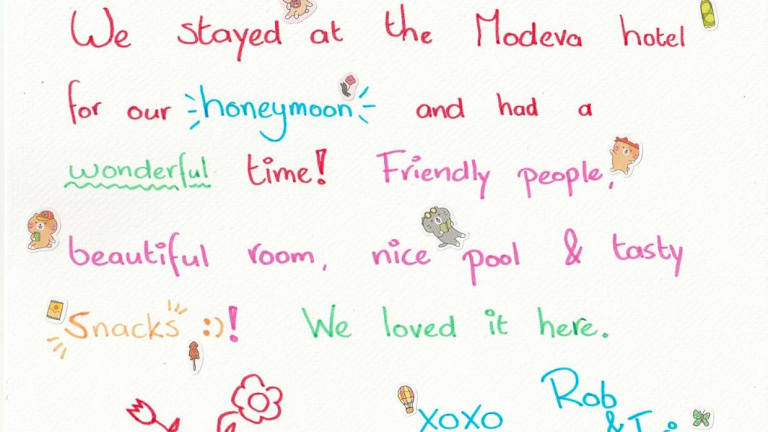 We stayed at the Modeva hotel
for our honeymoon and had a
wonderful time! Friendly people,
beautiful room, nice pool & tasty
Snacks :)! We loved it here.
XOXO Rob
&